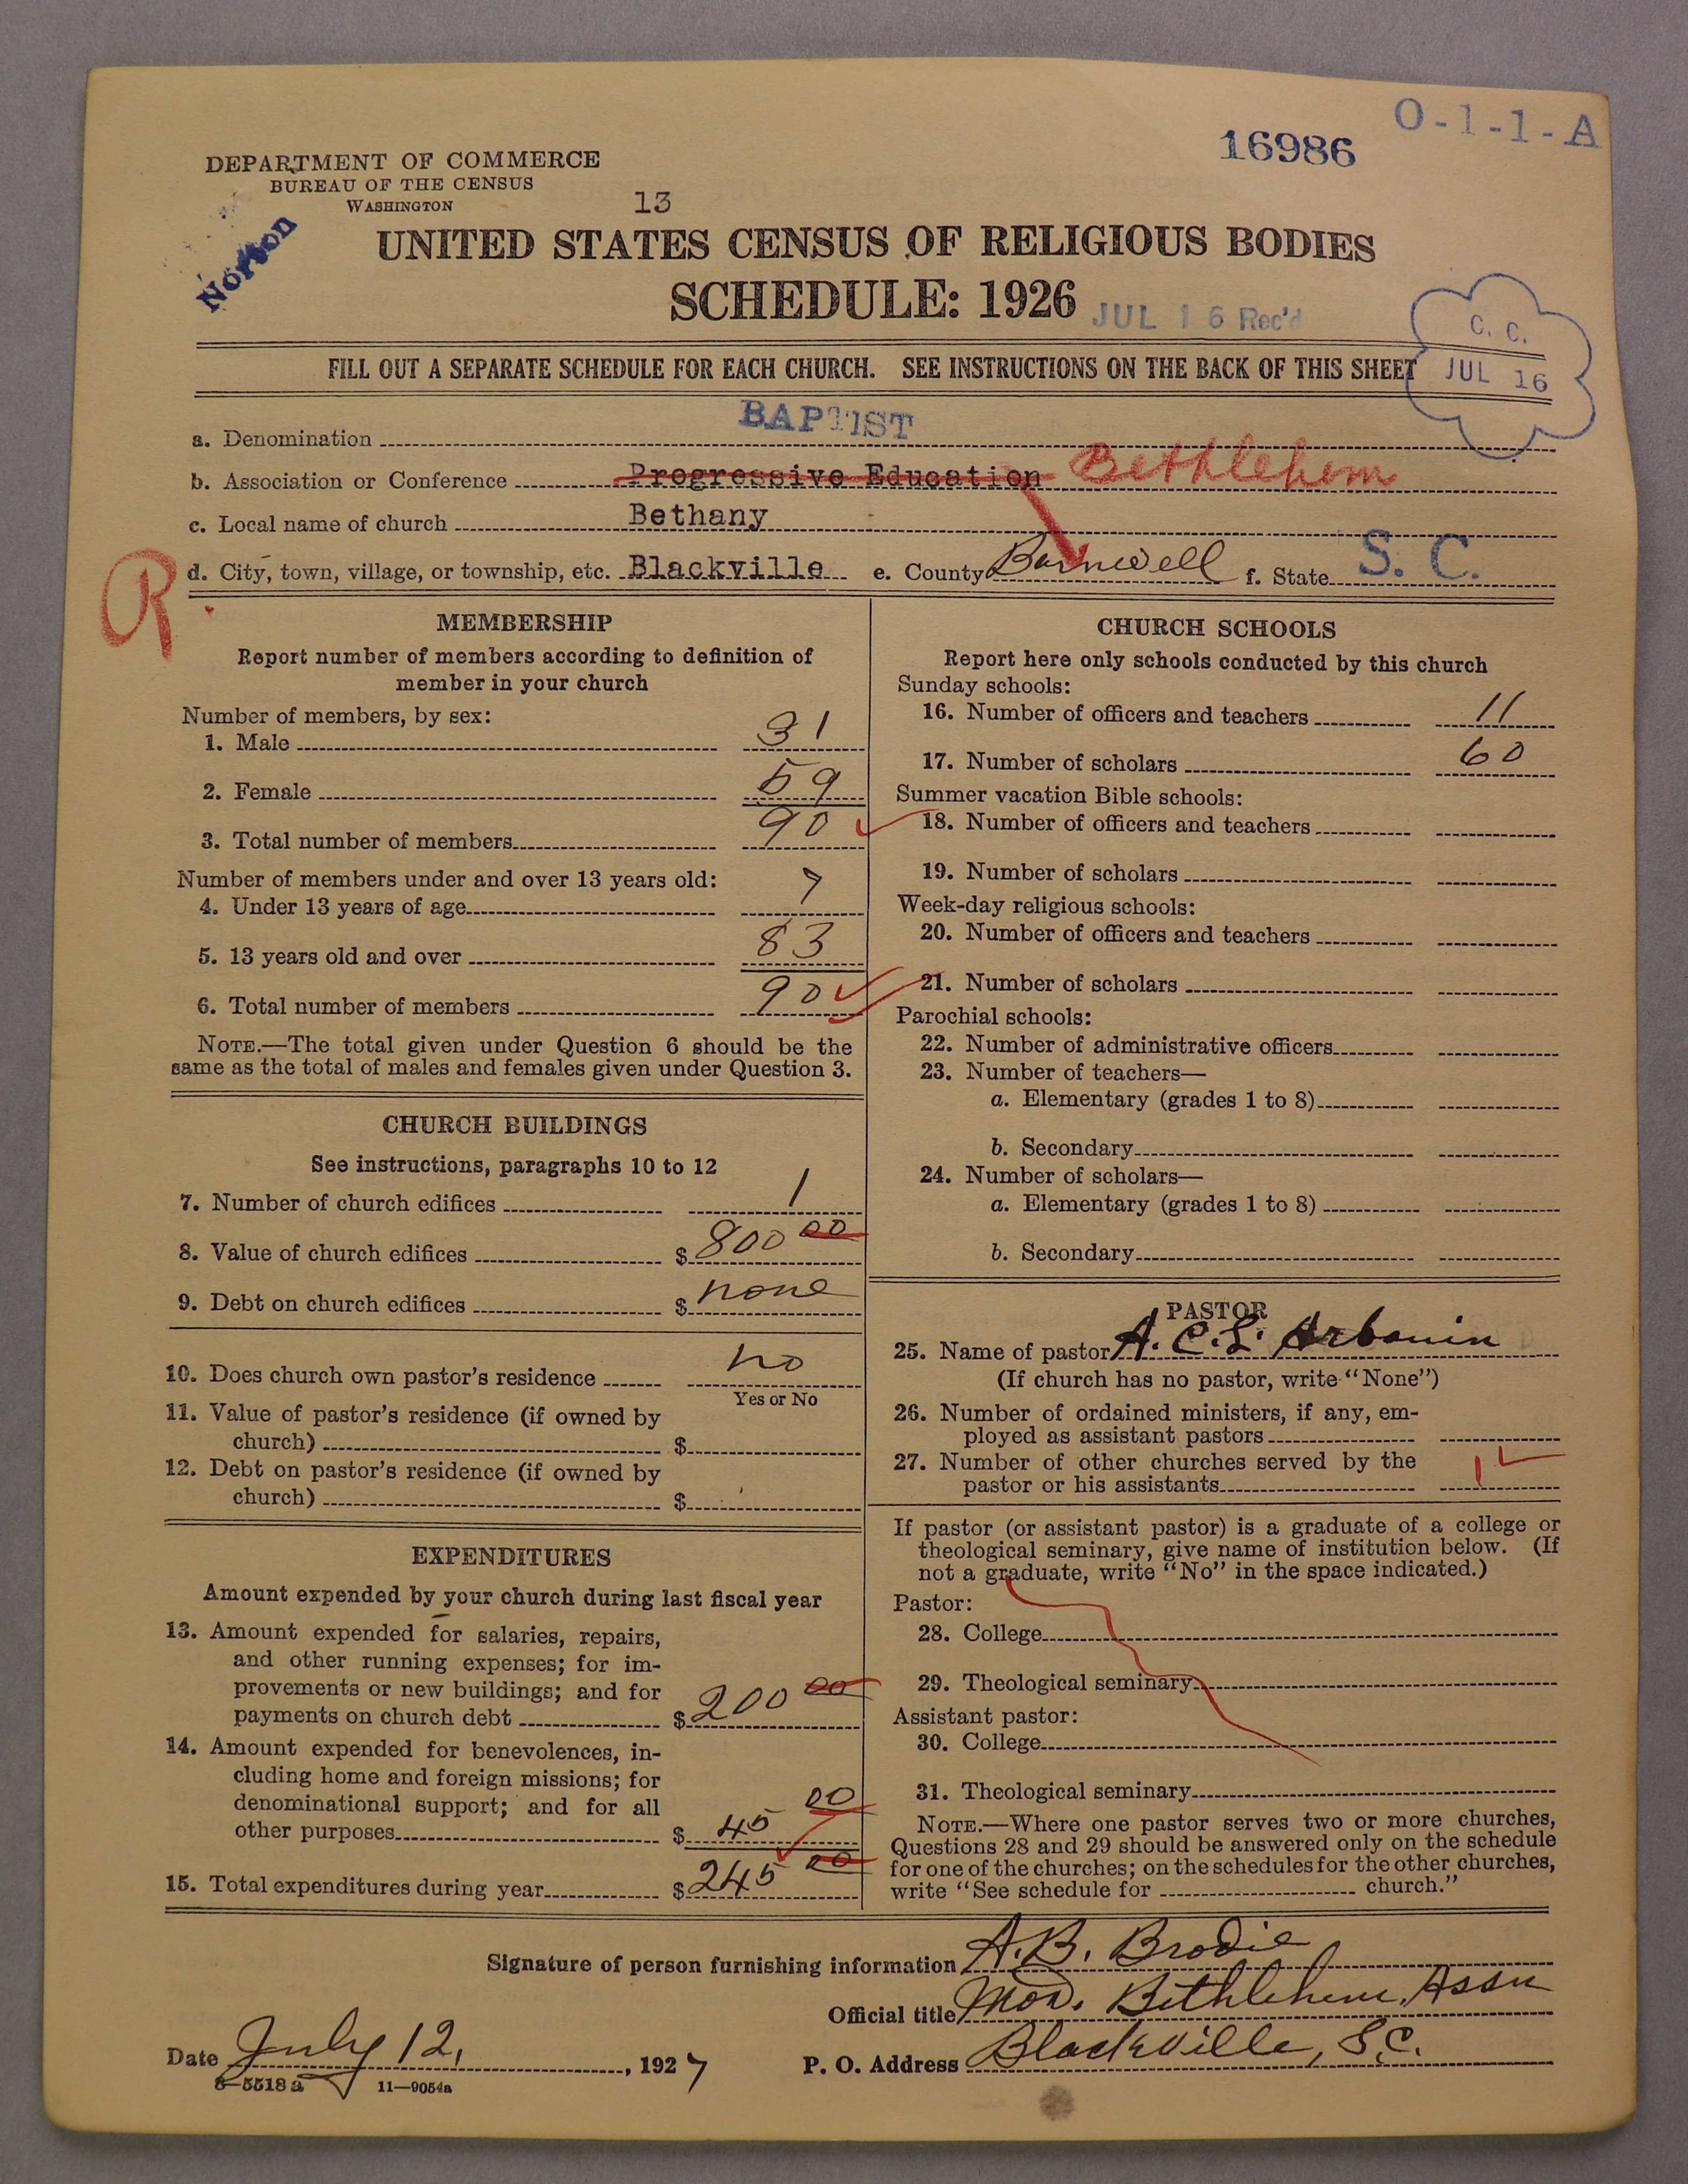 O-1-1-A
16986
DEPARTMENT OF COMMERCE
BUREAU OF THE CENSUS
WASHINGTON
13
Norton
UNITED STATES CENSUS OF RELIGIOUS BODIES
SCHEDULE: 1926
JUL 16 Rec'd
C. C.
JUL 16
FILL OUT A SEPARATE SCHEDULE FOR EACH CHURCH. SEE INSTRUCTIONS ON THE BACK OF THIS SHEET
a. Denomination BAPTIST
b. Association or Conference Progressive Education Bethlehem
c. Local name of church Bethany
R
d. City, town, village, or township, etc. Blackville e. County Barnwell f. State S. C.
MEMBERSHIP
Report number of members according to definition of
member in your church
Number of members, by sex:
1. Male 31
2. Female 59
3. Total number of members 90
Number of members under and over 13 years old:
4. Under 13 years of age 7
5. 13 years old and over 83
6. Total number of members 90
NOTE.—The total given under Question 6 should be the
same as the total of males and females given under Question 3.
CHURCH BUILDINGS
See instructions, paragraphs 10 to 12
7. Number of church edifices 1
8. Value of church edifices $ 800 00
9. Debt on church edifices $ none
10. Does church own pastor's residence no
Yes or No
11. Value of pastor's residence (if owned by
church) $
12. Debt on pastor's residence (if owned by
church) $
EXPENDITURES
Amount expended by your church during last fiscal year
13. Amount expended for salaries, repairs,
and other running expenses; for im-
provements or new buildings; and for
payments on church debt $ 200 00
14. Amount expended for benevolences, in-
cluding home and foreign missions; for
denominational support; and for all
other purposes $ 45 00
15. Total expenditures during year $ 245 00
CHURCH SCHOOLS
Report here only schools conducted by this church
Sunday schools:
16. Number of officers and teachers 11
17. Number of scholars 60
Summer vacation Bible schools:
18. Number of officers and teachers
19. Number of scholars
Week-day religious schools:
20. Number of officers and teachers
21. Number of scholars
Parochial schools:
22. Number of administrative officers
23. Number of teachers—
a. Elementary (grades 1 to 8)
b. Secondary
24. Number of scholars—
a. Elementary (grades 1 to 8)
b. Secondary
PASTOR
25. Name of pastor A. C. L. Arbouin
(If church has no pastor, write "None")
26. Number of ordained ministers, if any, em-
ployed as assistant pastors
27. Number of other churches served by the
pastor or his assistants 1
If pastor (or assistant pastor) is a graduate of a college or
theological seminary, give name of institution below. (If
not a graduate, write "No" in the space indicated.)
Pastor:
28. College
29. Theological seminary
Assistant pastor:
30. College
31. Theological seminary
NOTE.—Where one pastor serves two or more churches,
Questions 28 and 29 should be answered only on the schedule
for one of the churches; on the schedules for the other churches,
write "See schedule for church."
Signature of person furnishing information A. B. Brodie
Official title Mod. Bethlehem Assn
Date July 12, 1927 P. O. Address Blackville, S.C.
8—5518a 11—9054a